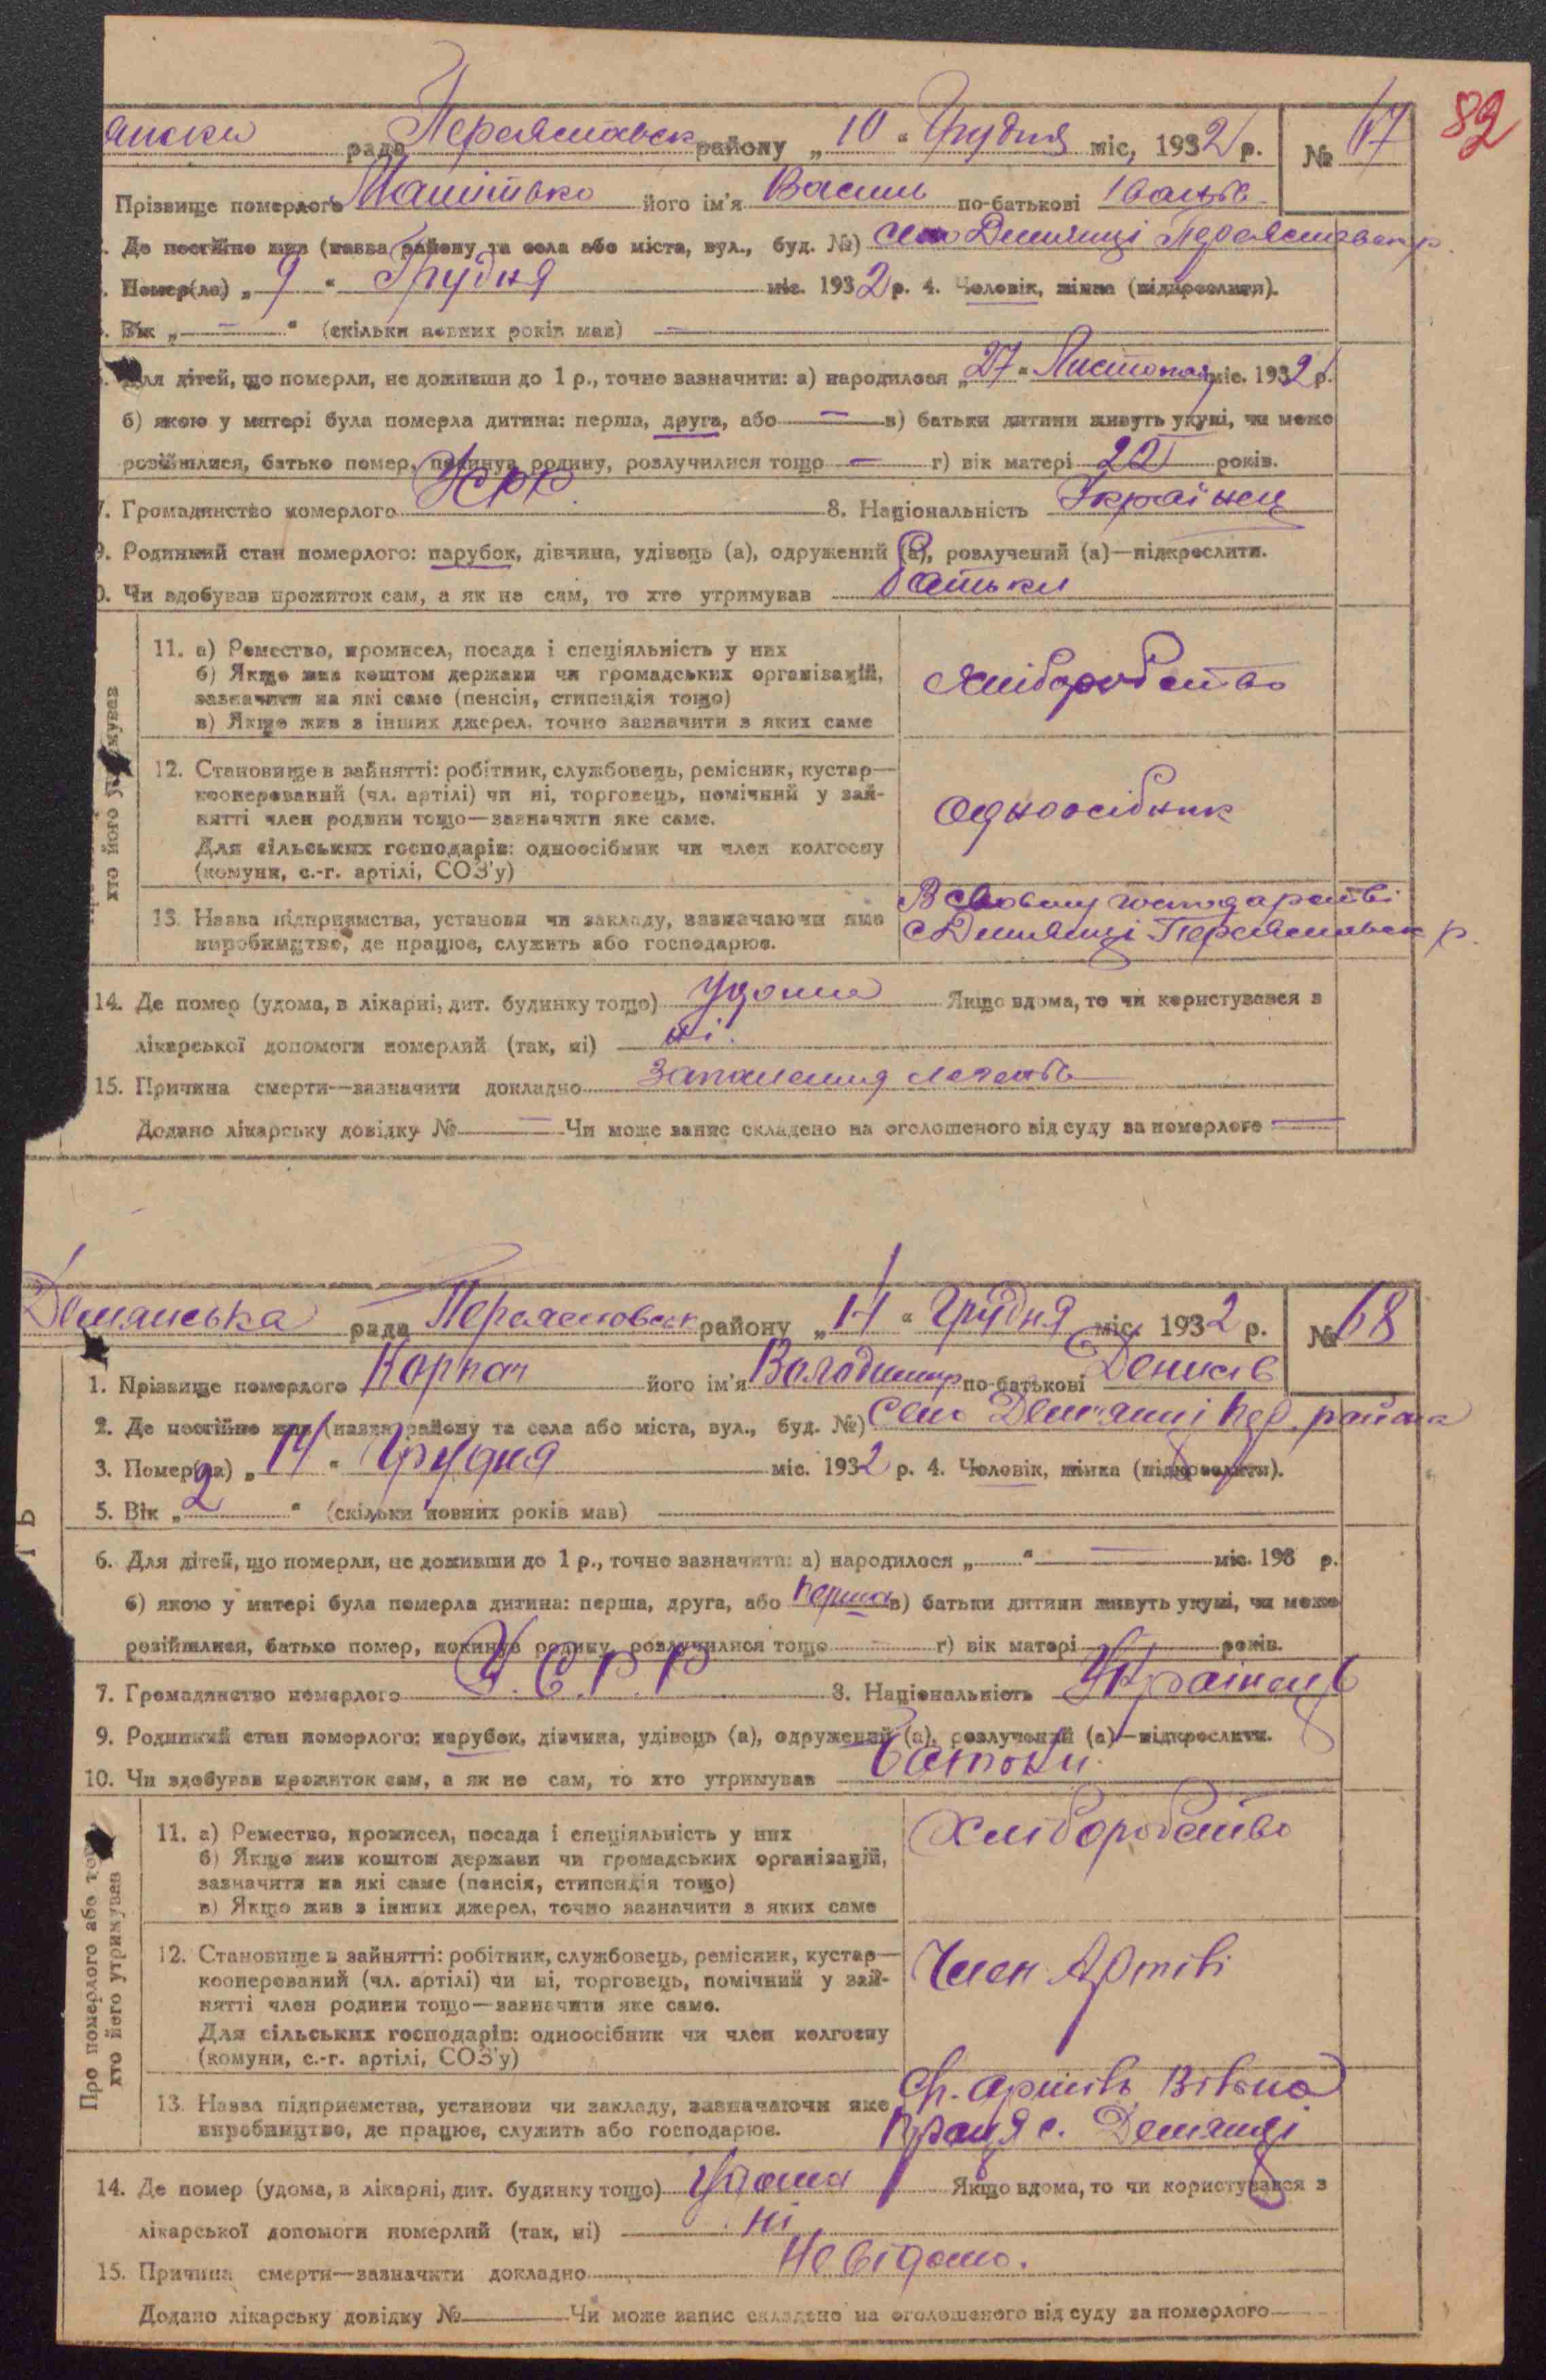 82
рада Переяславск району „10“ Грудня міс, 1932 р. № 67
Прізвище померлого його ім'я Василь по-батькові Іванів
Де постійно жив (назва району та села або міста, вул., буд. №) село Демянці Переяславск р.
Помер(ла) „9“ Грудня міс. 1932 р. 4. Чоловік, жінка (підкреслити).
Вік „—“ (скільки повних років мав) —
Для дітей, що померли, не доживши до 1 р., точно зазначити: а) народилося „27“ Листопад міс. 1932 р.
б) якою у матері була померла дитина: перша, друга, або — в) батьки дитини живуть укупі, чи може
розійшлися, батько помер, покинув родину, розлучилися тощо — г) вік матері років.
7. Громадянство померлого УСРР 8. Національність Українец
9. Родинний стан померлого: парубок, дівчина, удівець (а), одружений (а), розлучений (а)—підкреслити.
0. Чи здобував прожиток сам, а як не сам, то хто утримував батьки
хто його утримував
11. а) Ремество, промисел, посада і спеціяльність у них
б) Якщо жив коштом держави чи громадських організацій,
зазначити на які саме (пенсія, стипендія тощо)
в) Якщо жив з інших джерел, точно зазначити з яких саме
Хліборобство
12. Становище в зайнятті: робітник, службовець, ремісник, кустар—
кооперований (чл. артілі) чи ні, торговець, помічний у зай-
нятті член родини тощо—зазначити яке саме.
Для сільських господарів: одноосібник чи член колгоспу
(комуни, с.-г. артілі, СОЗ'у)
одноосібник
13. Назва підприємства, установи чи закладу, зазначаючи яке
виробництво, де працює, служить або господарює.
В своєму господарстві
с Демянці Переяславск р.
14. Де помер (удома, в лікарні, дит. будинку тощо) Удома Якщо вдома, то чи користувався з
лікарської допомоги померлий (так, ні) ні.
15. Причина смерти—зазначити докладно запаления легенів
Додано лікарську довідку № — Чи може запис складено на оголошеного від суду за померлого —
Демянська рада Переяславск району „14“ Грудня міс. 1932 р. № 68
1. Прізвище померлого Корпач його ім'я Володимир по-батькові Денисів
2. Де постійно жив (назва району та села або міста, вул., буд. №) село Дем'янці Пер. района
3. Помер(ла) „14“ Грудня міс. 1932 р. 4. Чоловік, жінка (підкреслити).
5. Вік „2“ (скільки повних років мав)
6. Для дітей, що померли, не доживши до 1 р., точно зазначити: а) народилося „ “ — міс. 193 р.
б) якою у матері була померла дитина: перша, друга, або перша в) батьки дитини живуть укупі, чи може
розійшлися, батько помер, покинув родину, розлучилися тощо — г) вік матері — років.
7. Громадянство померлого У.С.Р.Р 8. Національність Українець
9. Родинний стан померлого: парубок, дівчина, удівець (а), одружений (а), розлучений (а)—підкреслити.
10. Чи здобував прожиток сам, а як не сам, то хто утримував батьки
Про померлого або того
хто його утримував
11. а) Ремество, промисел, посада і спеціяльність у них
б) Якщо жив коштом держави чи громадських організацій,
зазначити на які саме (пенсія, стипендія тощо)
в) Якщо жив з інших джерел, точно зазначити з яких саме
Хліборобство
12. Становище в зайнятті: робітник, службовець, ремісник, кустар—
кооперований (чл. артілі) чи ні, торговець, помічний у зай-
нятті член родини тощо—зазначити яке саме.
Для сільських господарів: одноосібник чи член колгоспу
(комуни, с.-г. артілі, СОЗ'у)
Член Артілі
13. Назва підприємства, установи чи закладу, зазначаючи яке
виробництво, де працює, служить або господарює.
Вільна
Праця с. Демянці
14. Де помер (удома, в лікарні, дит. будинку тощо) Удома Якщо вдома, то чи користувався з
лікарської допомоги померлий (так, ні) ні
15. Причина смерти—зазначити докладно Не відомо.
Додано лікарську довідку № Чи може запис складено на оголошеного від суду за померлого